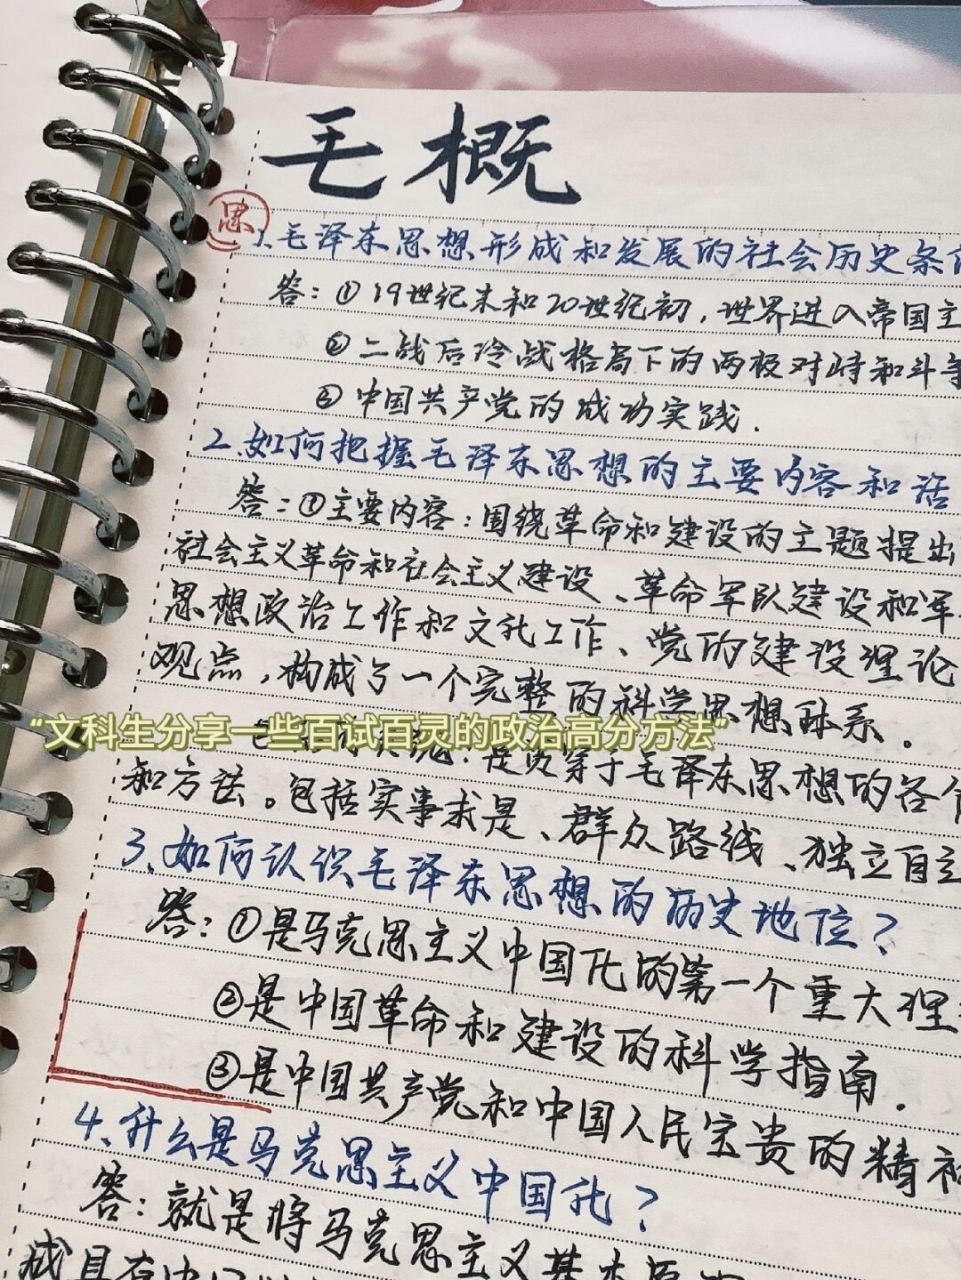 毛概
思
1.毛泽东思想形成和发展的社会历史条
答：①19世纪末和20世纪初，世界进入帝国主
②二战后冷战格局下的两极对峙和斗争
③中国共产党的成功实践．
2.如何把握毛泽东思想的主要内容和活
答：①主要内容：围绕革命和建设的主题提出
社会主义革命和社会主义建设、革命军队建设和军
思想政治工作和文化工作、党的建设理论
观点，构成了一个完整的科学思想体系。
“文科生分享一些百试百灵的政治高分方法”
：是贯穿于毛泽东思想的各个
和方法。包括实事求是、群众路线、独立自主
3、如何认识毛泽东思想的历史地位？
答：①是马克思主义中国化的第一个重大理
②是中国革命和建设的科学指南．
③是中国共产党和中国人民宝贵的精神
4、什么是马克思主义中国化？
答：就是将马克思主义基本原
成具有中